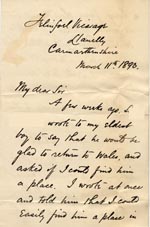 Felinfoel Vicarage
Llanelly
Carmarthenshire
March 11th 1893.
My dear Sir
A few weeks ago I
wrote to my eldest
boy to say that he would be
glad to return to Wales, and
asked if I could find him
a place. I wrote at once
and told him that I could
easily find him a place in